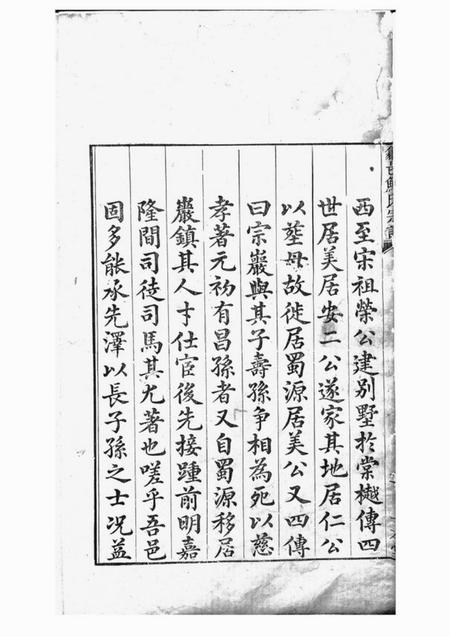 西至宋祖榮公建別墅於棠樾傳四
世居美居安二公遂家其地居仁公
以塟母故徙居蜀源居美公又四傳
曰宗巖與其子壽孫争相為死以慈
孝著元初有昌孫者又自蜀源移居
巖鎮其人才仕宦後先接踵前明嘉
隆間司徒司馬其尤著也嗟乎吾邑
固多能承先澤以長子孫之士况益